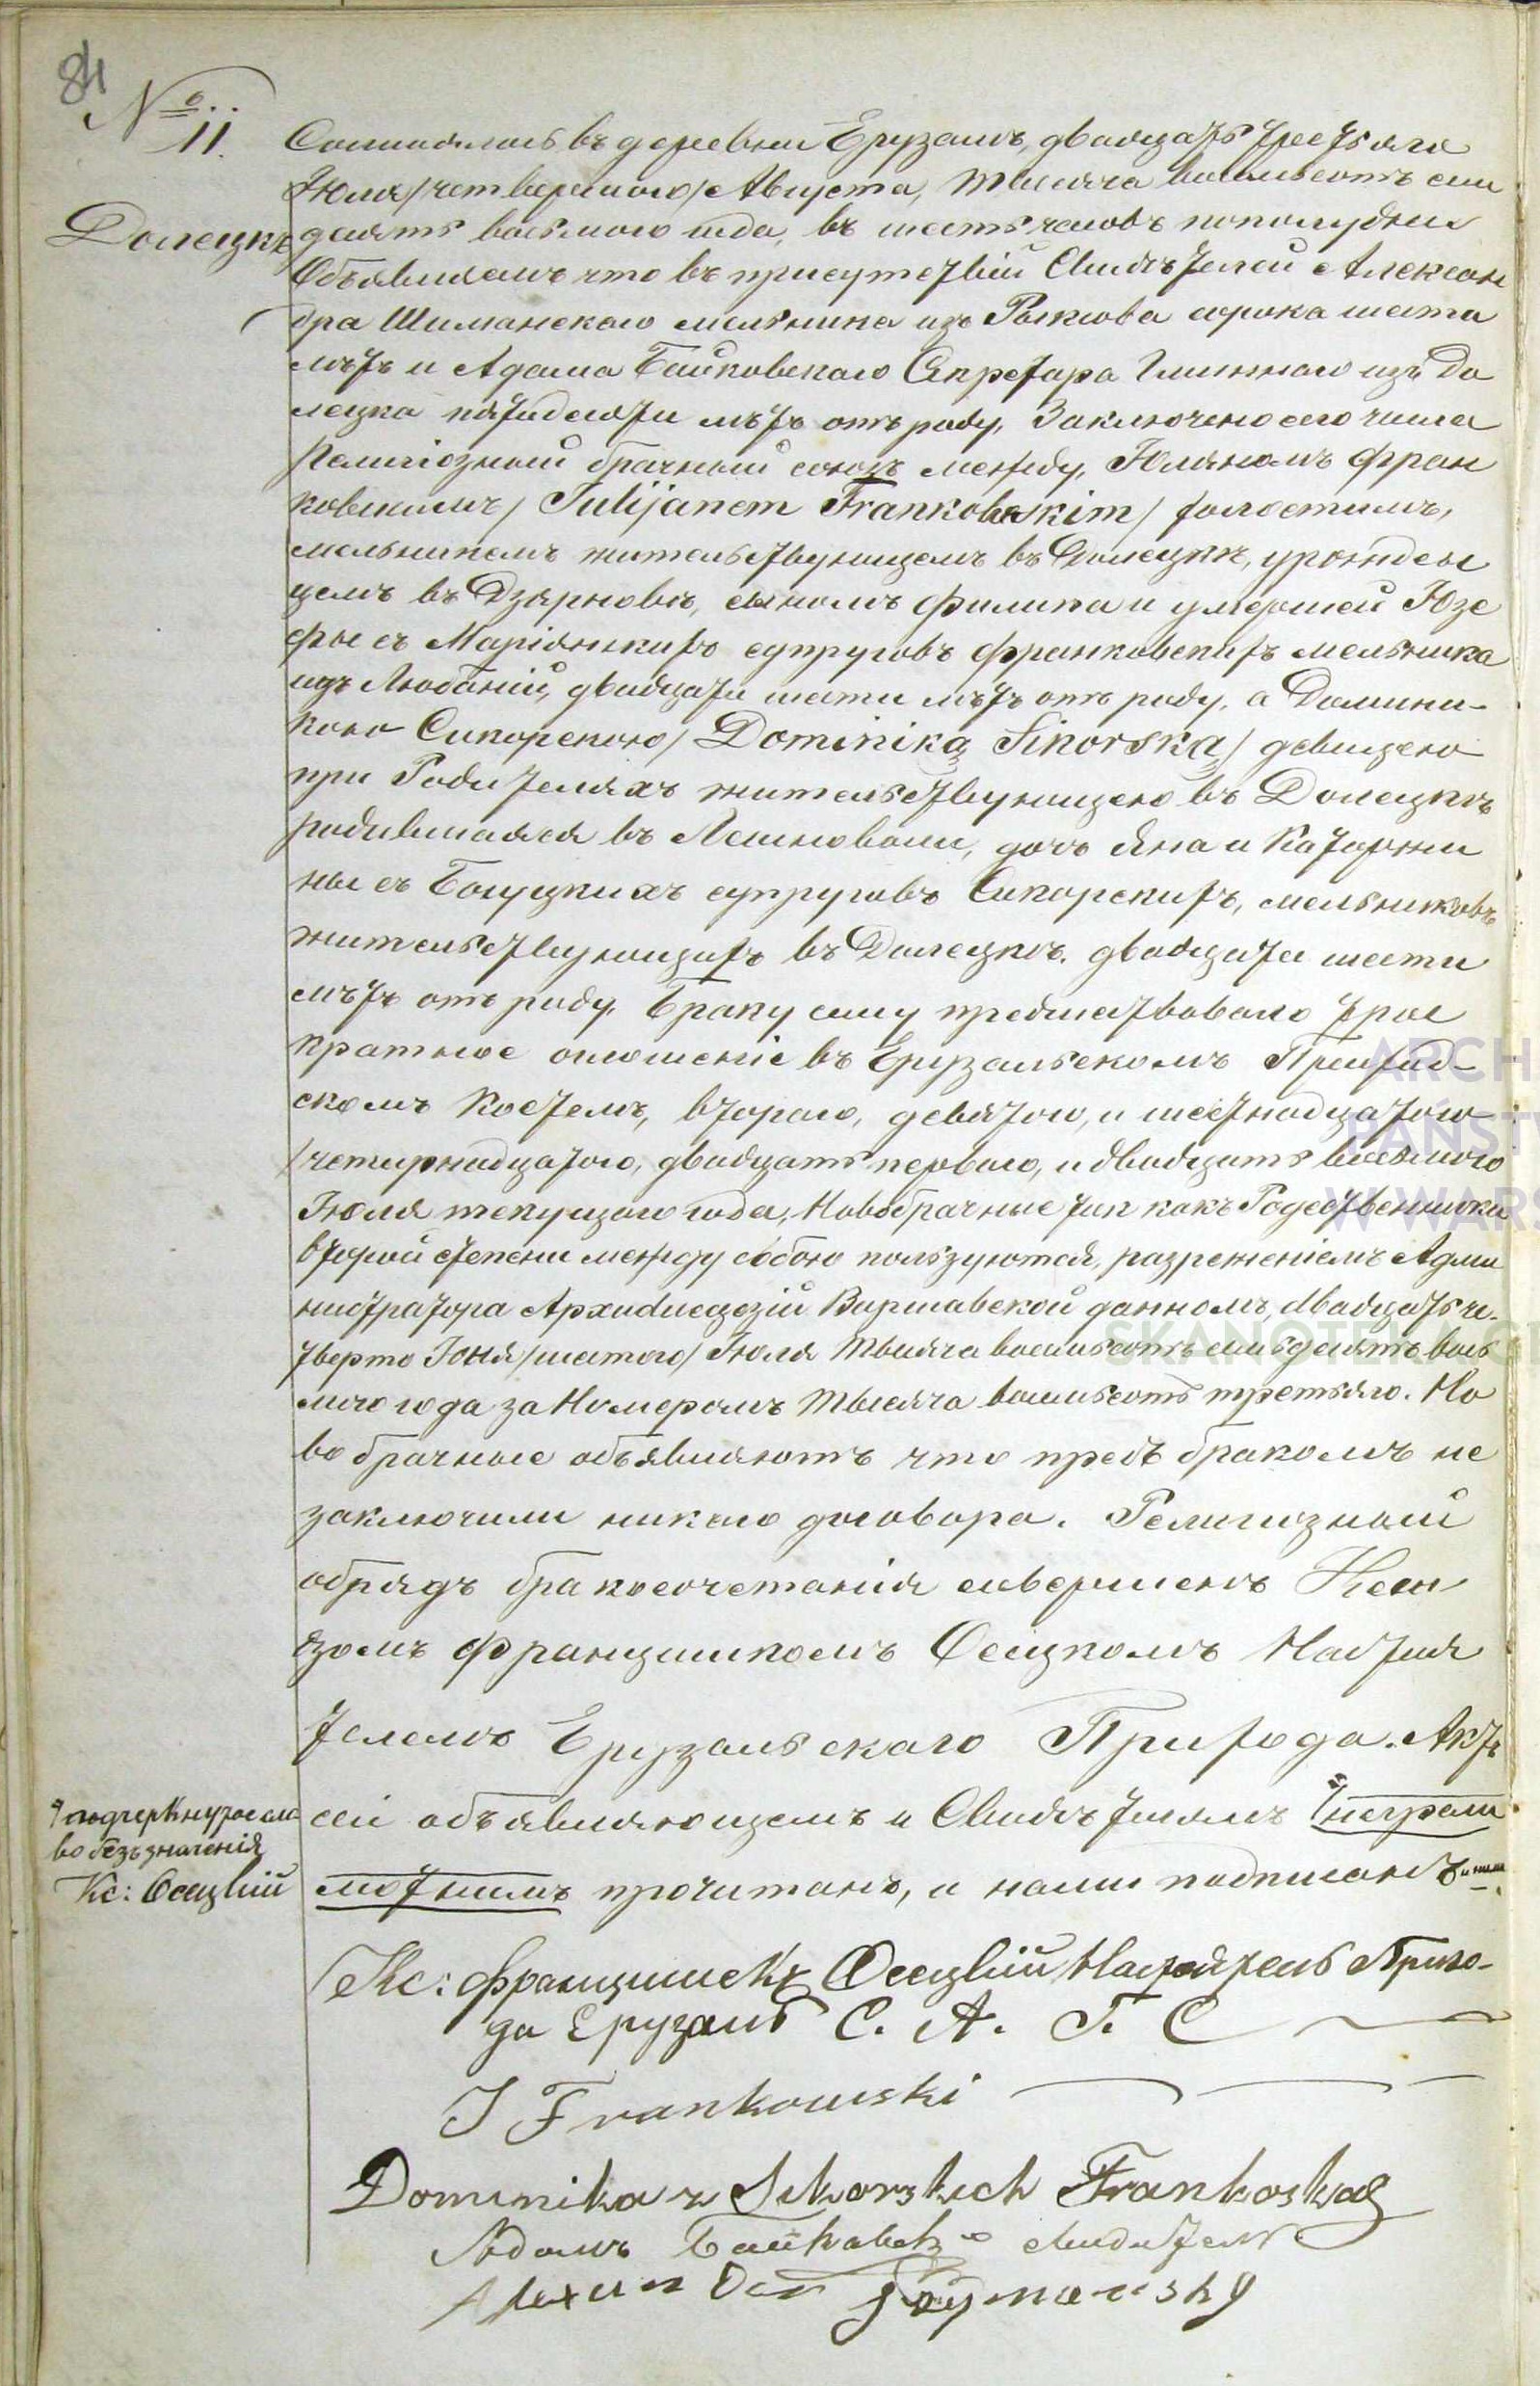 84
№ 11.
Долецкъ
Состоялось въ деревни Ерузаль, двадцать третьяго
Юля /четвертого/ Августа, тысяча восемьсотъ семи
десять восьмого года, въ шесть часовъ пополудни
Объявляемъ что въ присутствiи Свидѣтелей Алексан
дра Шиманскаго мельника изъ сорока шести
лѣтъ и Адама Байковскаго Секретара Гминнаго изъ До
лецка пятидесяти лѣтъ отъ роду, Заключено сего числа
Религiозный брачный союзъ между, Юляномъ Фран
ковскимъ / Julijanem Frankowskim / холостымъ,
мельникемъ жительствующемъ въ Долецкѣ, урожден
цемъ въ Дзярновѣ, сыномъ Филипа и умершей Юзе
фы съ Марiянкихъ супруговъ Франковскихъ мельника
изъ Любанiи, двадцати шести лѣтъ отъ роду, а Домини-
кою Сикорскою / Dominiką Sikorską / девицею
при Родителяхъ жительствующею въ Долецкѣ
родившаяся въ дочь Яна и Катаржи
ны съ супруговъ Сикорскихъ, мельниковъ
жительствующихъ въ Долецкѣ, двадцати шести
лѣтъ отъ роду, Браку сему предшествовало трое
кратное оглошенiе въ Ерузальскомъ Приход-
скомъ Костелѣ, второго, девятого, и шестнадцатого
/четырнадцатого, двадцать первого, и двадцать восьмого
Iюля текущаго года, Новобрачные какъ Родственники
второй степени между собою пользуются, разрешенiемъ Адми
нистратора Архидиецезiи Варшавской данномъ, двадцать че-
тверто Iюня /шестого/ Iюля тысяча восемьсотъ семьдесятъ вось
мого года за Номеромъ тысяча восемьсотъ третьяго. Но
во брачные объявляютъ что предъ бракомъ не
заключили никаго договора. Религиозный
обрядъ бракосочетанiя совершенъ Ксен-
дзомъ Францишкомъ Осецкомъ Настоя
телемъ Ерузальскаго Прихода. Актъ
сей объявляющемъ и Свидѣтелямъ негра
мотнымъ прочитанъ, и нами подписанъ
подчеркнутое сло
во безъ значенiя
Кс: Осецкiй
Кс: Францишекъ Осецкiй Настоятель Прихо-
да Ерузаль С. А. Г. С
J Frankowski
Dominika z Sikorskich Frankoska
Адамъ свидетель
Alexander Szymansky